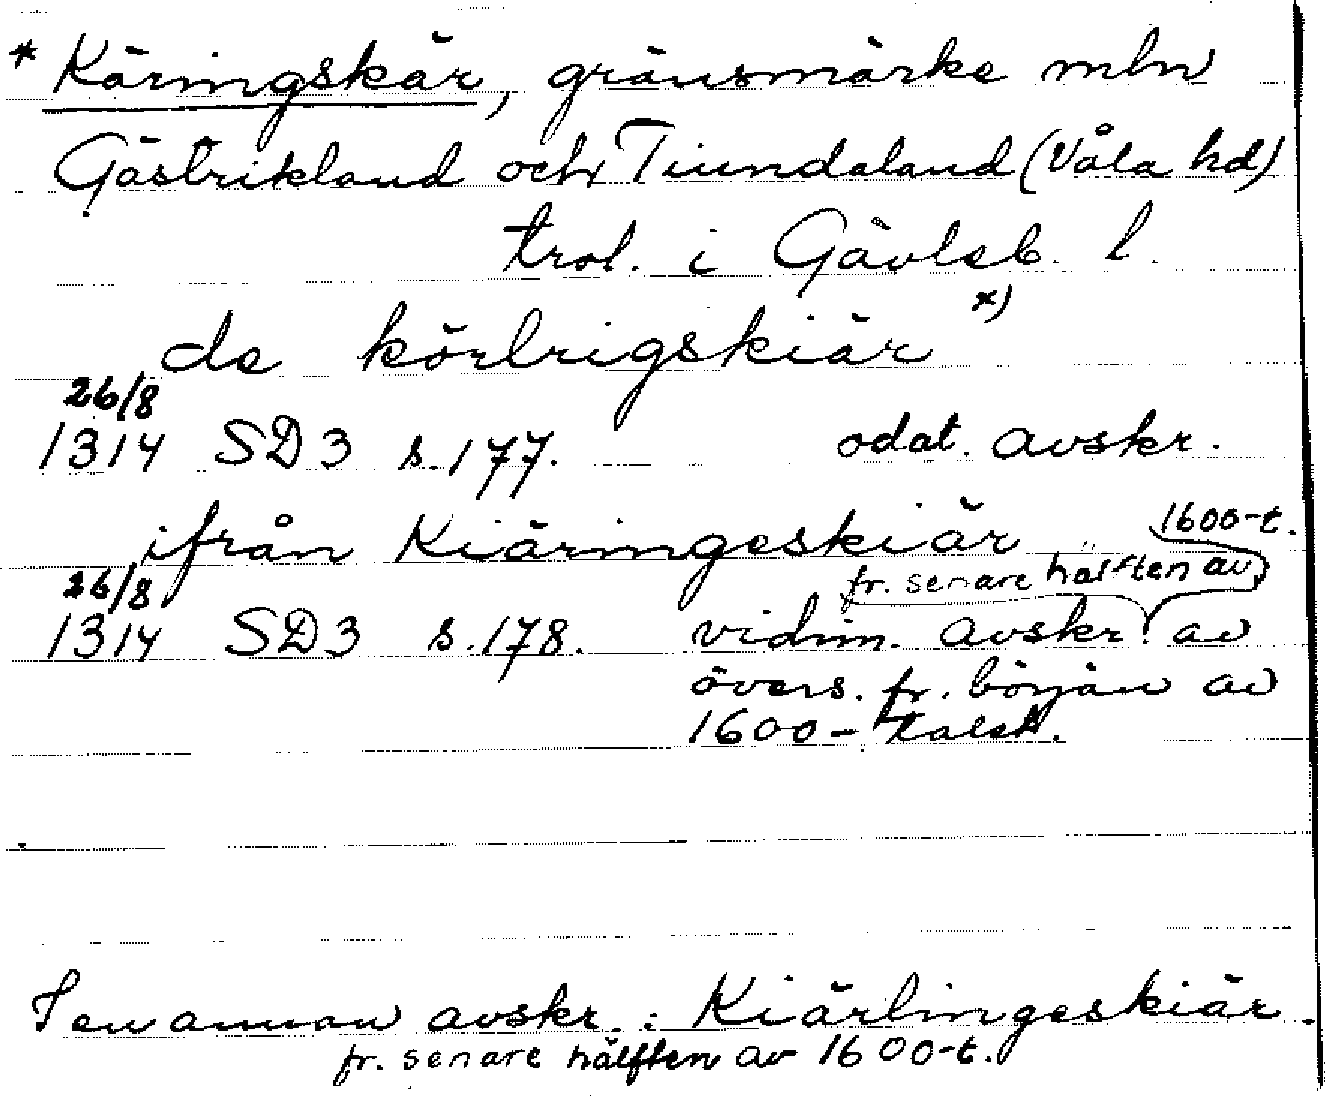 * Käringskär, gränsmärke mln
Gästrikland och Tiundaland (Våla hd)
trol. i Gävleb. l.
de körlrigskiär x)
26/8
1314 SD3 s. 177. odat. avskr.
ifrån Kiäringeskiär
1600-t.
fr. senare hälften av
26/8
1314 SD3 s. 178. vidim. avskr. av
övers. fr. början av
1600-talet.
I en annan avskr. : Kiärlingeskiär.
fr. senare hälften av 1600-t.